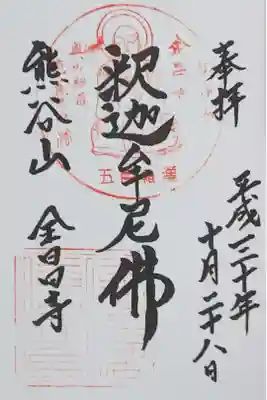 奉拝
平成三十年
十月二十八日
釈迦牟尼佛
熊谷山
全昌寺
五百羅漢